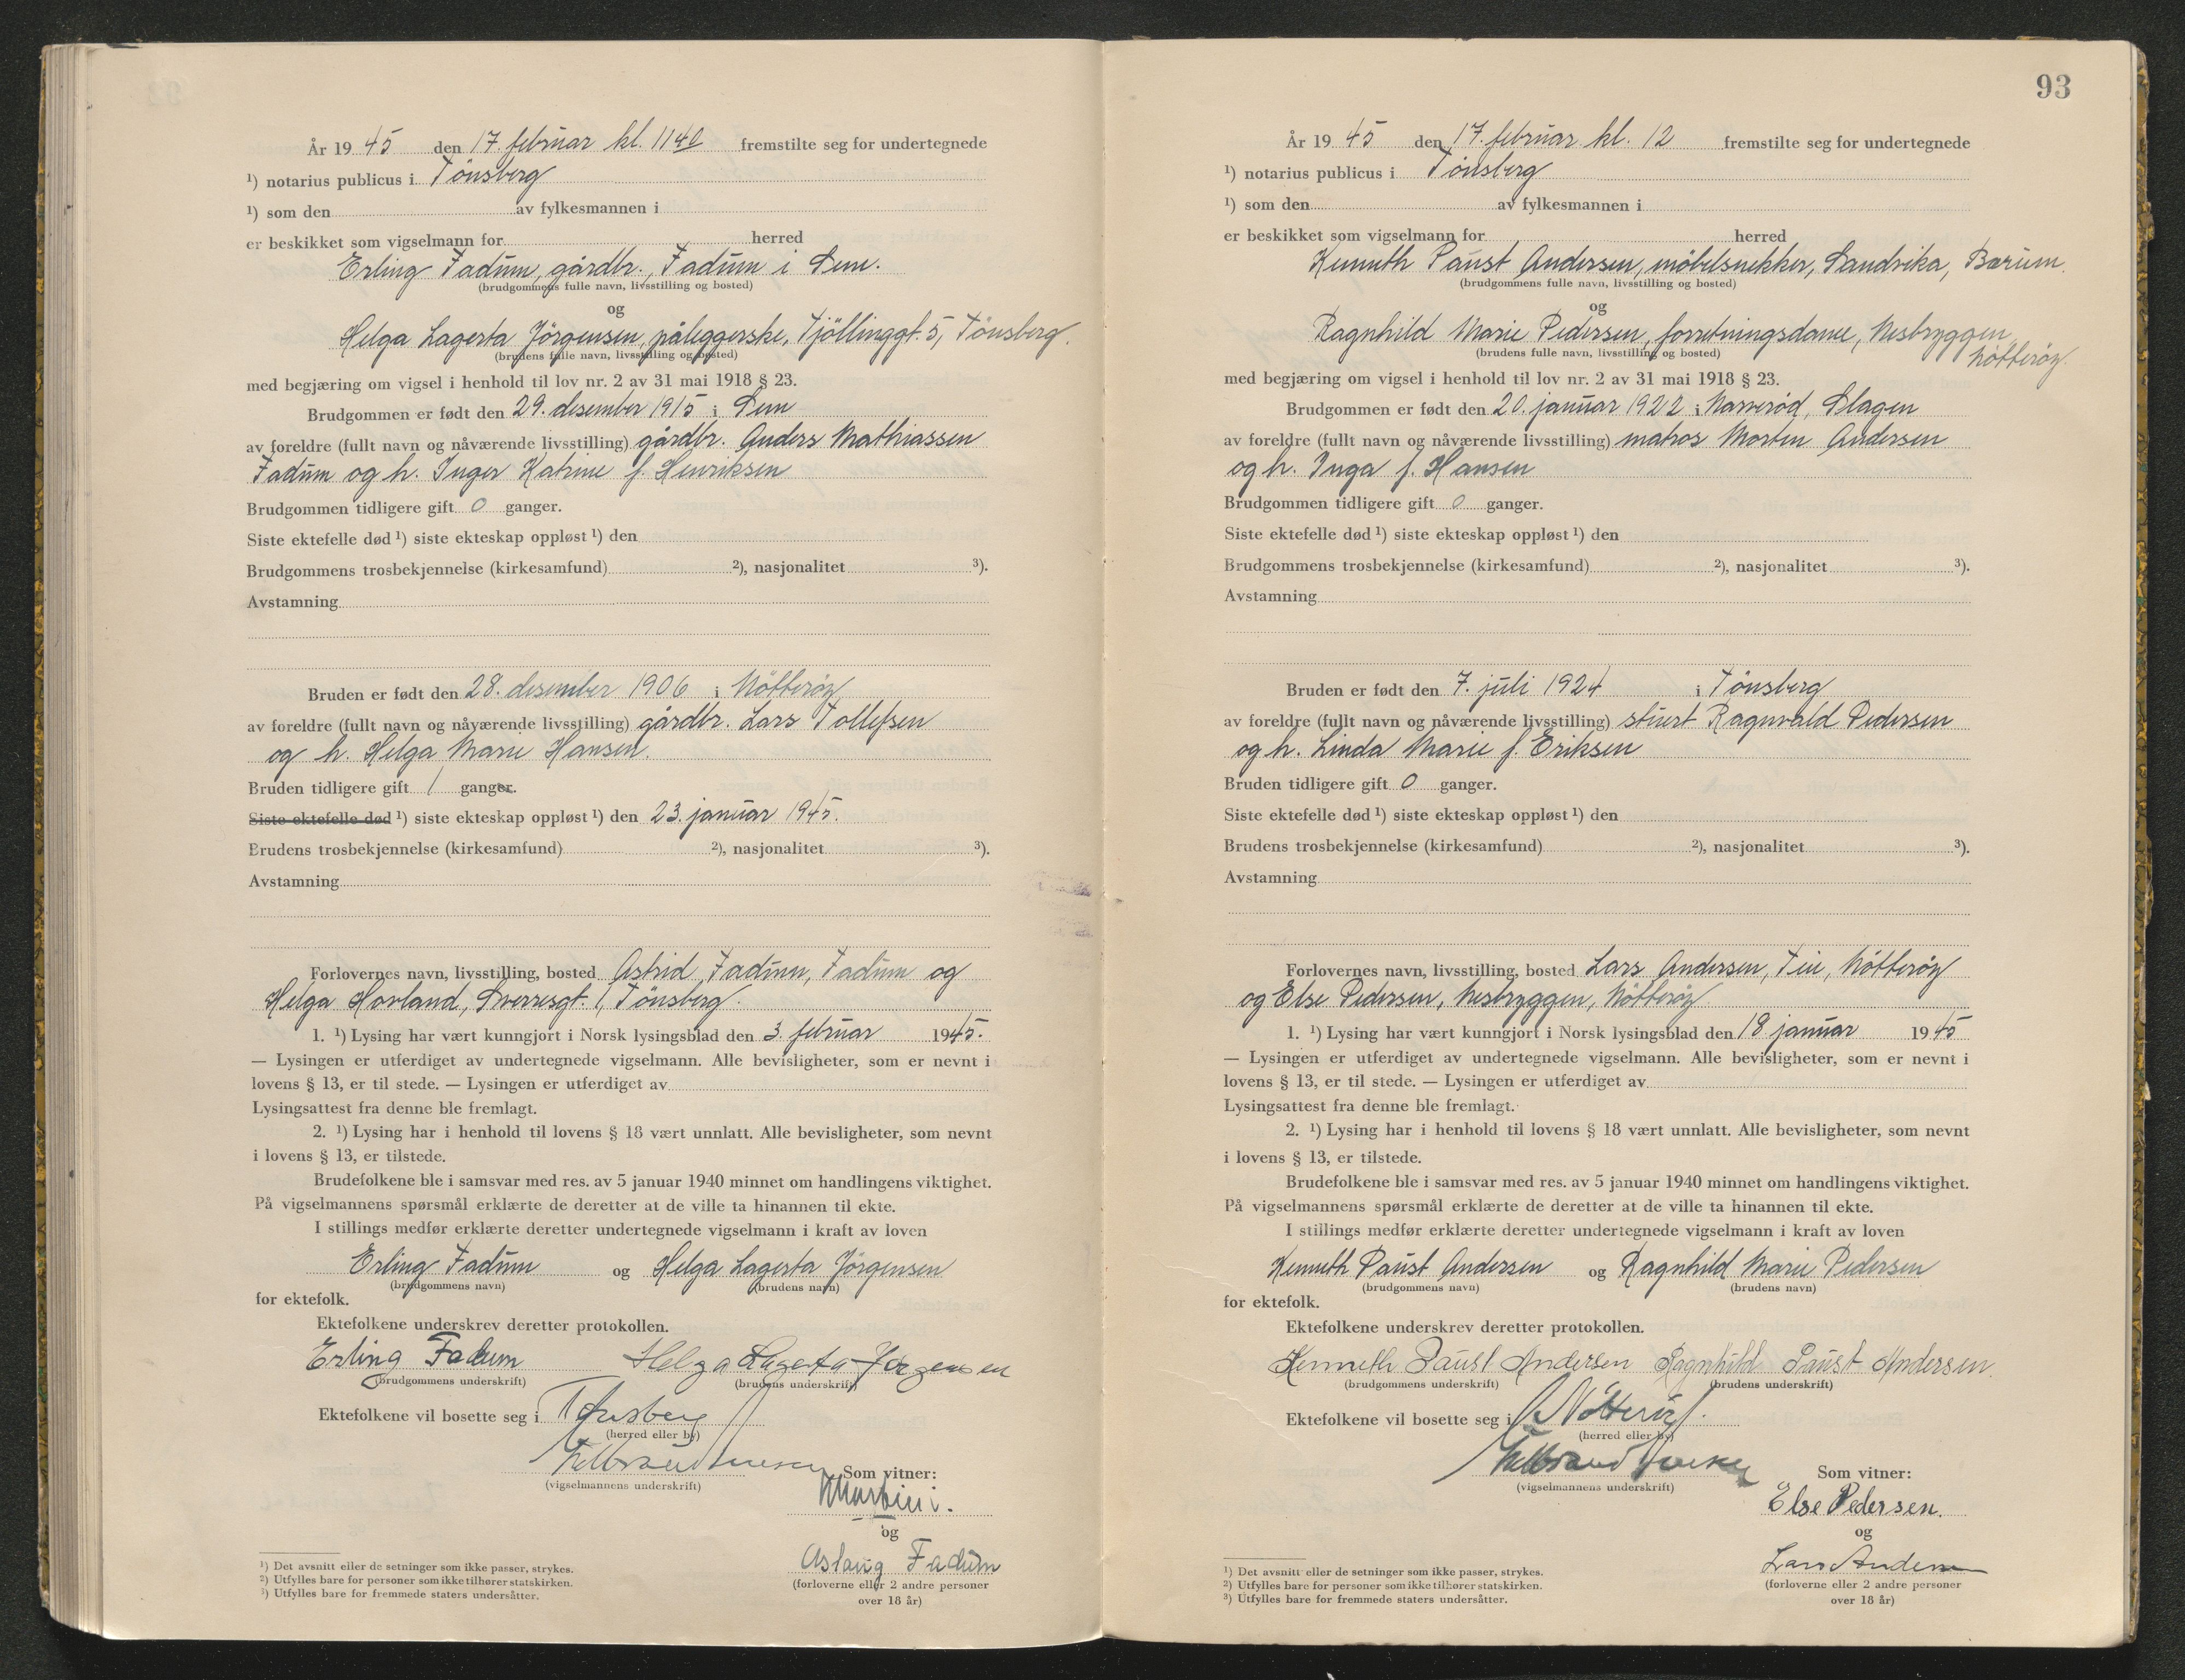 År 1945 den 17. februar kl. 1140 fremstilte seg for undertegnede
¹) notarius publicus i Tönsberg
¹) som den av fylkesmannen i
er beskikket som vigselmann for herred
Erling Fadum, gårdbr., Fadum i Sem.
(brudgommens fulle navn, livsstilling og bosted)
og
Helga Lagerta Jörgensen, påleggerske, Tjöllinggt. 5, Tönsberg.
(brudens fulle navn, livsstilling og bosted)
med begjæring om vigsel i henhold til lov nr. 2 av 31 mai 1918 § 23.
Brudgommen er født den 29. desember 1915 i Sem
av foreldre (fullt navn og nåværende livsstilling) gårdbr. Anders Mathiassen
Fadum og h. Inger Katrine f. Henriksen
Brudgommen tidligere gift 0 ganger.
Siste ektefelle død ¹) siste ekteskap oppløst ¹) den
Brudgommens trosbekjennelse (kirkesamfund) ²), nasjonalitet ³).
Avstamning
Bruden er født den 28. desember 1906 i Nötteröy
av foreldre (fullt navn og nåværende livsstilling) gårdbr. Lars Tollefsen
og h. Helga Marie Hansen.
Bruden tidligere gift 1 ganger.
Siste ektefelle død ¹) siste ekteskap oppløst ¹) den 23. januar 1945.
Brudens trosbekjennelse (kirkesamfund) ²), nasjonalitet ³).
Avstamning
Forlovernes navn, livsstilling, bosted Astrid Fadum, Fadum og
Helga Hovland, Sverresgt. 1, Tönsberg.
1. ¹) Lysing har vært kunngjort i Norsk lysingsblad den 3. februar 1945.
— Lysingen er utferdiget av undertegnede vigselmann. Alle bevisligheter, som er nevnt i
lovens § 13, er til stede. — Lysingen er utferdiget av
Lysingsattest fra denne ble fremlagt.
2. ¹) Lysing har i henhold til lovens § 18 vært unnlatt. Alle bevisligheter, som nevnt
i lovens § 13, er tilstede.
Brudefolkene ble i samsvar med res. av 5 januar 1940 minnet om handlingens viktighet.
På vigselmannens spørsmål erklærte de deretter at de ville ta hinannen til ekte.
I stillings medfør erklærte deretter undertegnede vigselmann i kraft av loven
Erling Fadum og Helga Lagerta Jörgensen
(brudgommens navn) (brudens navn)
for ektefolk.
Ektefolkene underskrev deretter protokollen.
Erling Fadum Helga Lagerta Jörgensen
(brudgommens underskrift) (brudens underskrift)
Ektefolkene vil bosette seg i Tønsberg
(herred eller by)
Som vitner:
(vigselmannens underskrift)
og
Aslaug Fadum
(forloverne eller 2 andre personer
over 18 år)
¹) Det avsnitt eller de setninger som ikke passer, strykes.
²) Utfylles bare for personer som ikke tilhører statskirken.
³) Utfylles bare for fremmede staters undersåtter.
93
År 1945 den 17. februar kl. 12 fremstilte seg for undertegnede
¹) notarius publicus i Tönsberg
¹) som den av fylkesmannen i
er beskikket som vigselmann for herred
Kenneth Paust Andersen, möbelsnekker, Sandvika, Bærum.
(brudgommens fulle navn, livsstilling og bosted)
og
Ragnhild Marie Pedersen, forretningsdame, Nesbryggen,
Nötteröy.
(brudens fulle navn, livsstilling og bosted)
med begjæring om vigsel i henhold til lov nr. 2 av 31 mai 1918 § 23.
Brudgommen er født den 20. januar 1922 i Narverød, Slagen
av foreldre (fullt navn og nåværende livsstilling) matros Morten Andersen
og h. Inga f. Hansen
Brudgommen tidligere gift 0 ganger.
Siste ektefelle død ¹) siste ekteskap oppløst ¹) den
Brudgommens trosbekjennelse (kirkesamfund) ²), nasjonalitet ³).
Avstamning
Bruden er født den 7. juli 1924 i Tönsberg
av foreldre (fullt navn og nåværende livsstilling) stuert Ragnvald Pedersen
og h. Linda Marie f. Eriksen
Bruden tidligere gift 0 ganger.
Siste ektefelle død ¹) siste ekteskap oppløst ¹) den
Brudens trosbekjennelse (kirkesamfund) ²), nasjonalitet ³).
Avstamning
Forlovernes navn, livsstilling, bosted Lars Andersen, Teie, Nötteröy
og Else Pedersen, Nesbryggen, Nötteröy.
1. ¹) Lysing har vært kunngjort i Norsk lysingsblad den 18 januar 1945
— Lysingen er utferdiget av undertegnede vigselmann. Alle bevisligheter, som er nevnt i
lovens § 13, er til stede. — Lysingen er utferdiget av
Lysingsattest fra denne ble fremlagt.
2. ¹) Lysing har i henhold til lovens § 18 vært unnlatt. Alle bevisligheter, som nevnt
i lovens § 13, er tilstede.
Brudefolkene ble i samsvar med res. av 5 januar 1940 minnet om handlingens viktighet.
På vigselmannens spørsmål erklærte de deretter at de ville ta hinannen til ekte.
I stillings medfør erklærte deretter undertegnede vigselmann i kraft av loven
Kenneth Paust Andersen og Ragnhild Marie Pedersen
(brudgommens navn) (brudens navn)
for ektefolk.
Ektefolkene underskrev deretter protokollen.
Kenneth Paust Andersen Ragnhild Paust Andersen.
(brudgommens underskrift) (brudens underskrift)
Ektefolkene vil bosette seg i Nötteröy.
(herred eller by)
Som vitner:
(vigselmannens underskrift)
Else Pedersen.
og
Lars Andersen
(forloverne eller 2 andre personer
over 18 år)
¹) Det avsnitt eller de setninger som ikke passer, strykes.
²) Utfylles bare for personer som ikke tilhører statskirken.
³) Utfylles bare for fremmede staters undersåtter.